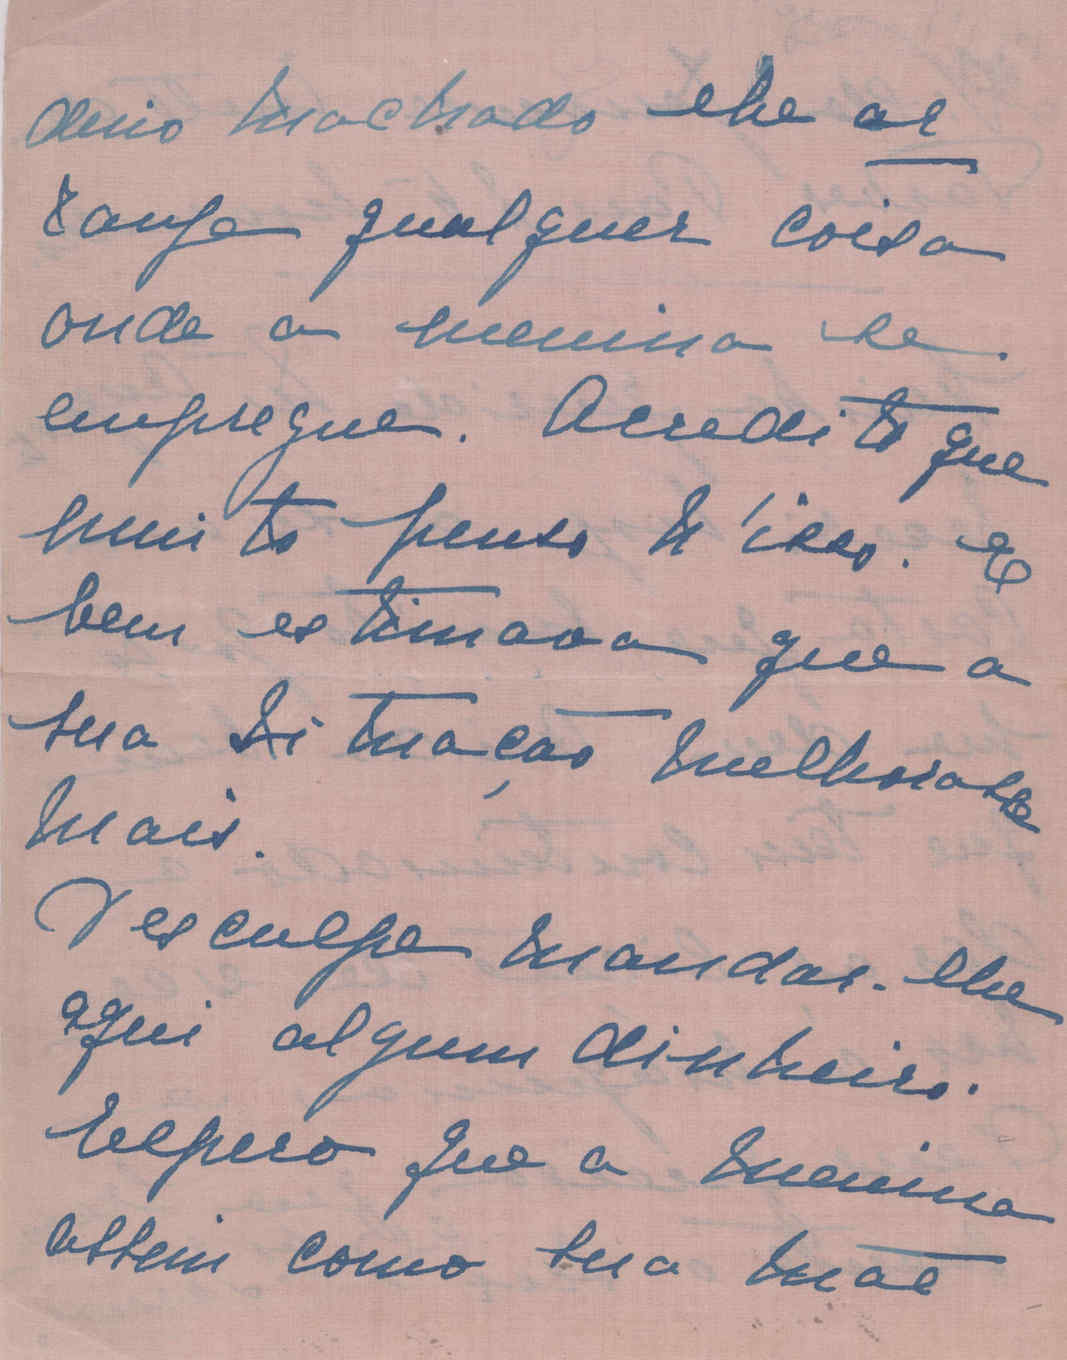 dino Machado lhe ar
range qualquer coisa
onde a menina se
empregue. Acredito que
muito penso n'isso. E
bem estimava que a
sua situação melhorasse
mais.
Desculpe mandar-lhe
aqui algum dinheiro.
Espero que a menina
assim como sua mãe